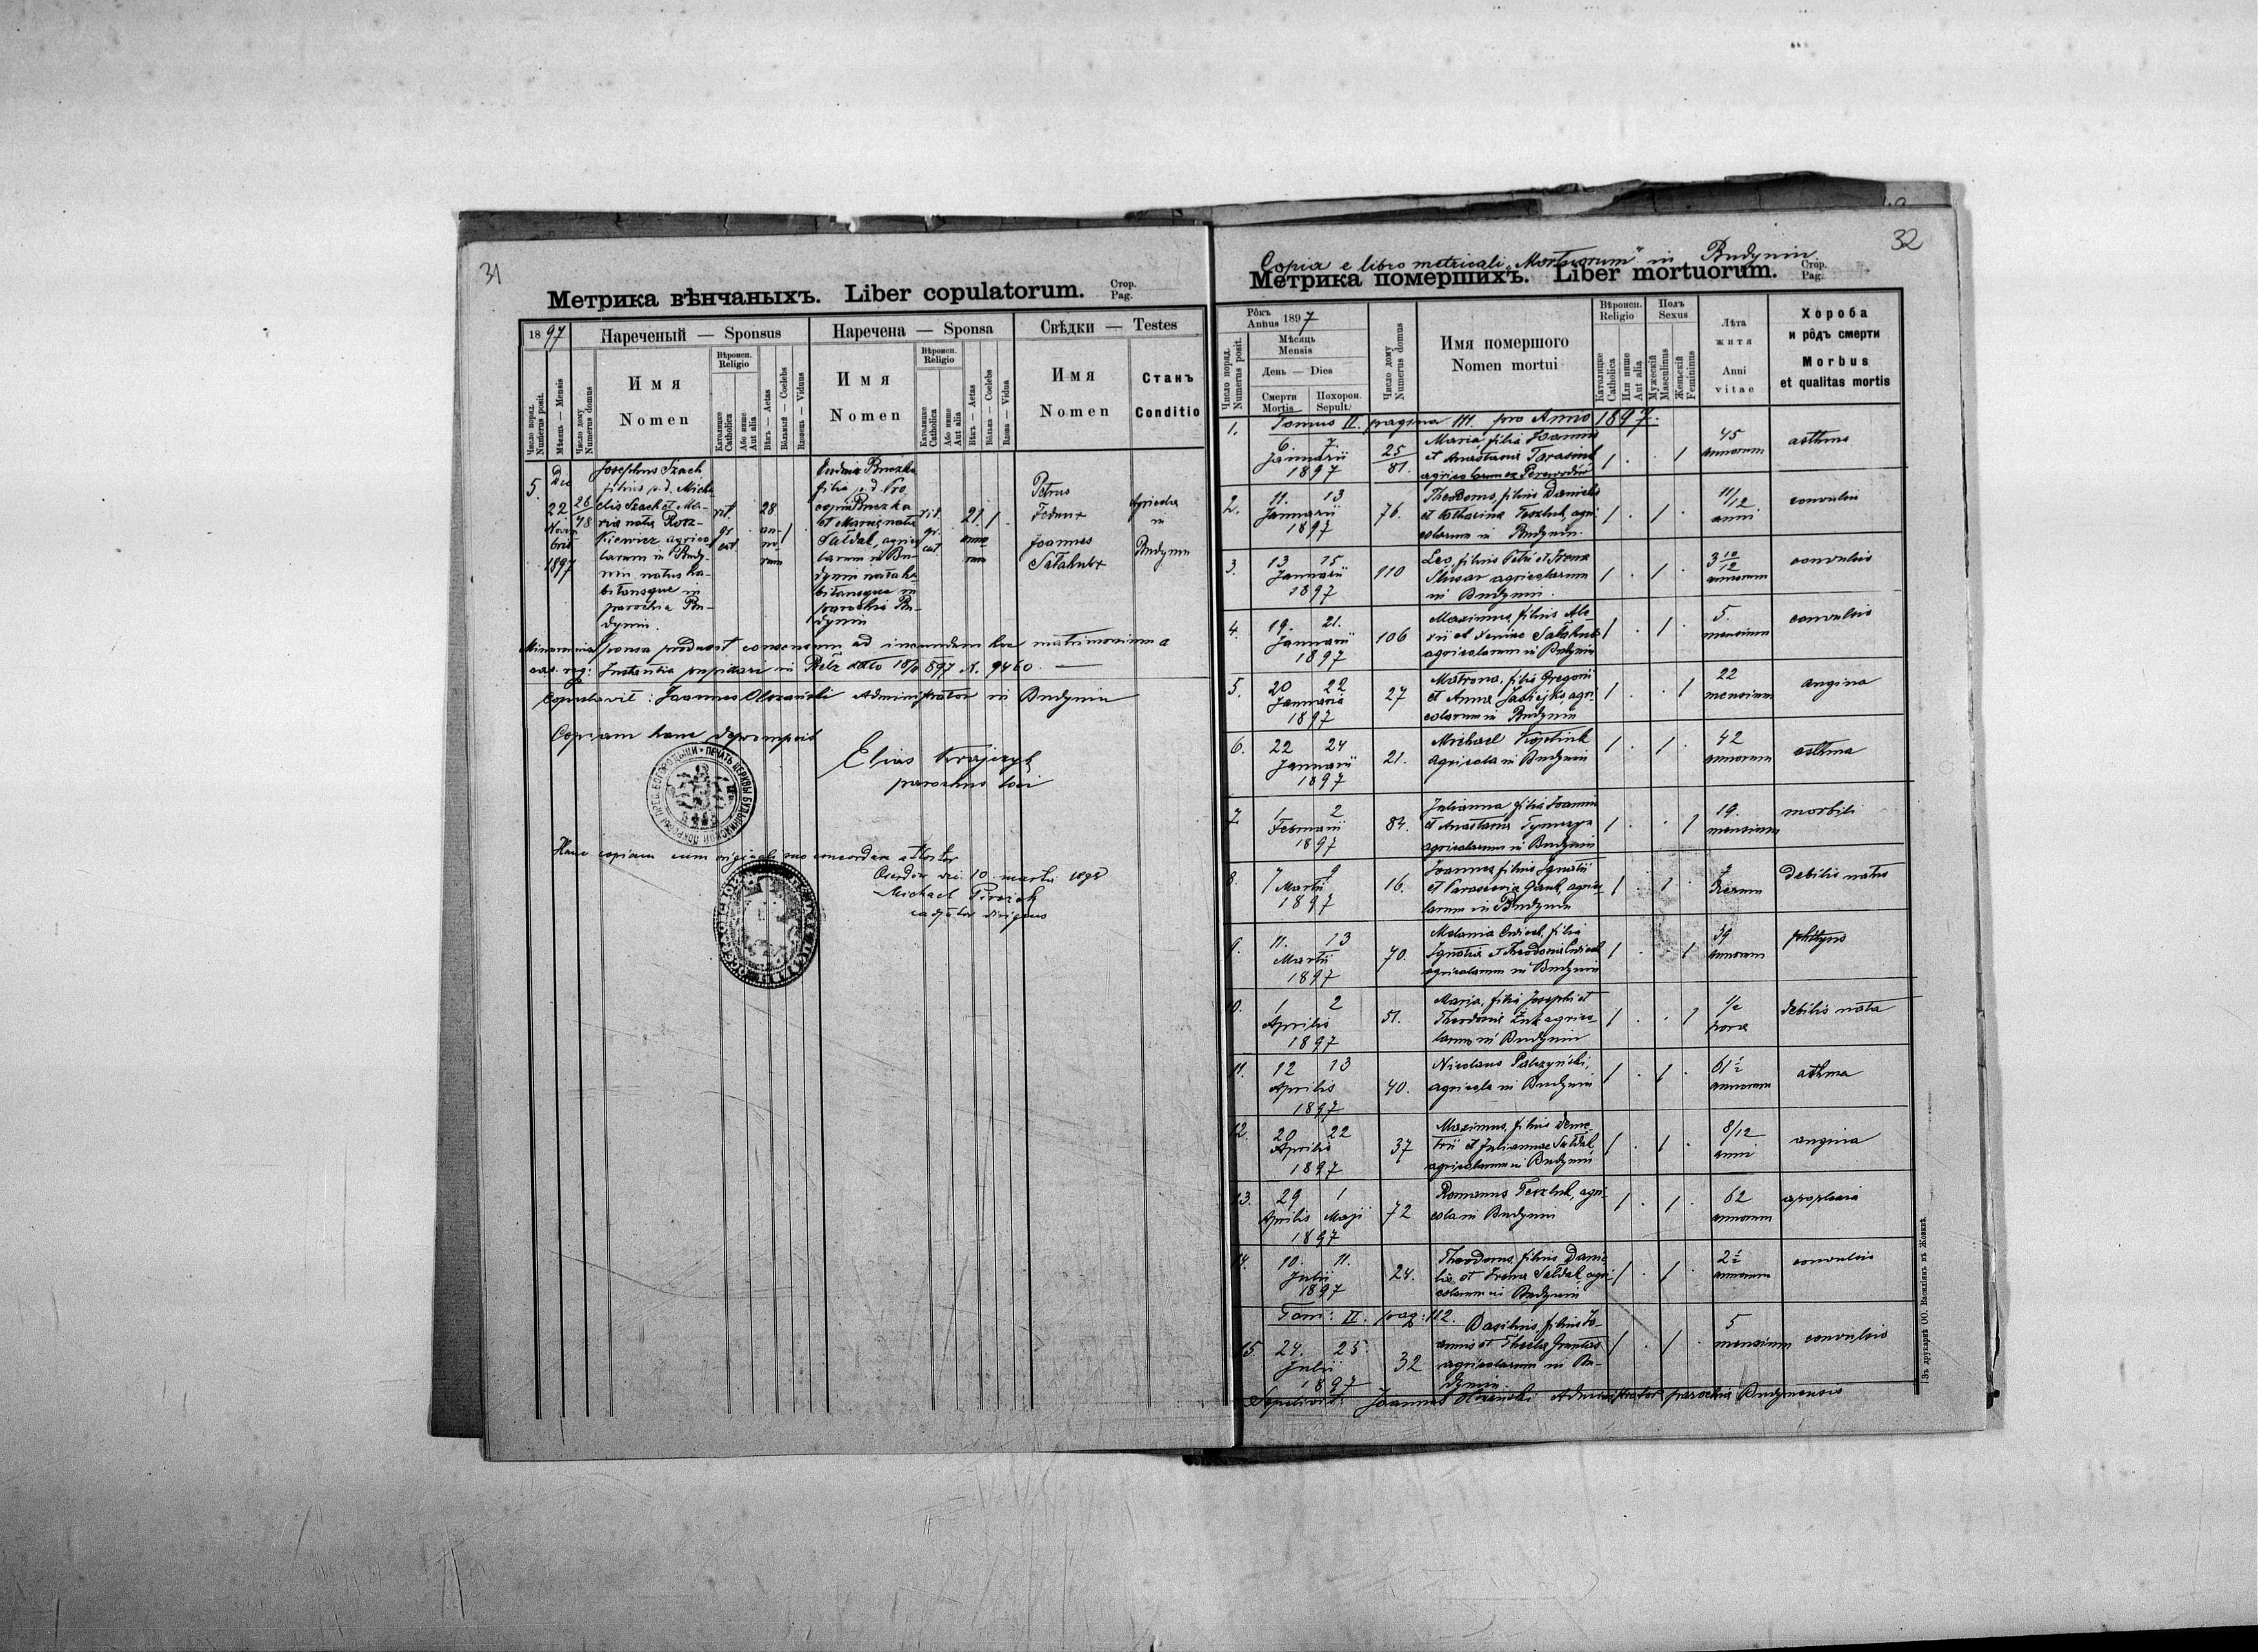 31
Метрика вѣнчаныхъ. Liber copulatorum. Стор. Pag.
1897
Нареченый — Sponsus
Наречена — Sponsa
Свѣдки — Testes
Число поряд. Numerus posit.
Мѣсяць — Mensis
Число дому Numerus domus
Имя Nomen
Вѣроисп. Religio
Католицке Catholica
Або инше Aut alia
Вѣкъ — Aetas
Вôльный — Coelebs
Вдовець — Viduus
Имя Nomen
Вѣроисп. Religio
Католицке Catholica
Або инше Aut alia
Вѣкъ — Aetas
Вôльна — Coelebs
Вдова — Vidua
Имя Nomen
Станъ Conditio
5.
Die
22
Novembris
1897
26
78
Josephus Szach
filius p.d. Micha-
elis Szach et Ma-
ria nata Rosz-
kiewicz agrico-
larum in Budy-
nin natus ha-
bitansque in
parochia Bu-
dynin.
rit
gr
cat
28
an-
no-
rum
/
Eudoxia Buczko
filia p.d. Pro
copii Buczko
et Maria nata
Saldal, agrico
larum in Bu-
dynin nata ha-
bitansque in
parochia Bu-
dynin
rit
gr.
cat
21
anno
rum
/
Petrus
Fedun +
Joannes
Salahub +
Agricolae
in
Budynin
Minorennis Sponsa produxit consensum ad ineundum hoc matrimonium a
caes. reg: Instantia pupillari in Belz dato 18/10 897 N. 9460. —
Copulavit: Joannes Olszański Administrator in Budynin
Copiam hanc deprompsit
Elias Krajczyk
parochus loci
Hanc copiam cum originali suo concordare attestor
10 martii 1898
Michael Pirożek
32
Copia e libro metricali „Mortuorum" in Budynin.
Метрика помершихъ. Liber mortuorum. Стор. Pag.
Число поряд. Numerus posit.
Рôкъ Annus 1897
Мѣсяць Mensis
День — Dies
Смерти Mortis
Похорон. Sepult.
Число дому Numerus domus
Имя помершого
Nomen mortui
Вѣроисп. Religio
Католицке Catholica
Или инше Aut alia
Полъ Sexus
Мужескій Masculinus
Женьскій Feminiuus
Лѣта житя
Anni vitae
Хороба и рôдъ смерти
Morbus et qualitas mortis
Tomus II. pagina 111. pro Anno 1897.
1. 6. 7. Januarii 1897 25/81.
Maria, filia Joannis
et Anastasiae Tarasiuk
agricolarum ex Perewodów
/ . . / 45 annorum asthma
2. 11. 13 Januarii 1897 76.
Theodorus, filius Danielis
et Catharina Teszluk, agri
colarum in Budynin.
/ . / . 11/12 anni convulsio
3. 13 15 Januarii 1897 110
Leo, filius Petri et Irena
Slusar agricolarum
in Budynin.
/ . / . 3 10/12 annorum convulsio
4. 19. 21. Januarii 1897 106
Maximus, filius Ale
xii et Xeniae Salahub
agricolarum in Budynin
/ . / . 5. mensium convulsio
5. 20 22 Januarii 1897 27
Matrona, filia Gregorii
et Anna Jasiejko, agri-
colarum in Budynin
/ . . / 22 mensium angina
6. 22 24 Januarii 1897 21.
Michael
agricola in Budynin
/ . / . 42 annorum asthma
7. 1 2 Februarii 1897 84.
Julianna filia Joannis
et Anastasia
agricolarum in Budynin
/ . . / 19. mensium morbili
8. 7 9 Martii 1897 16.
Joannes filius Ignatii
et Parascevia agrico
larum in Budynin
/ . / . 7 dierum debilis natus
9. 11. 13 Martii 1897 70.
Melania filia
Ignatii et Theodosia
agricolarum in Budynin
/ . . / 39 annorum phthysis
10. 1 2 Aprilis 1897 51.
Maria, filia Josephi et
Theodosia Żuk agrico-
larum in Budynin
/ . . / 1/2 hora debilis nata
11. 12 13 Aprilis 1897 40.
Nicolaus Palczyński,
agricola in Budynin
/ . / . 61 1/2 annorum asthma
12. 20 22 Aprilis 1897 37
Maximus, filius Deme
trii et Juliannae Saldal,
agricolarum in Budynin
/ . / . 8/12 anni angina
13. 29 Aprilis 1 Maji 1897 72
Romanus Teszluk, agri-
cola in Budynin
/ . / . 62 annorum apoplexia
14. 10. 11. Julii 1897 24.
Theodorus, filius Danie
lis et Irena Saldal, agri
colarum in Budynin
/ . / . 2 1/2 annorum convulsio
Tom: II. pag: 112.
15. 24. 25 Julii 1897 32
Basilius, filius Jo-
annis et Thecla
agricolarum in Bu-
dynin.
/ . / . 5 mensium convulsio
Sepelivit: Joannes Olszański Administrator parochiae Budynensis
Зъ друкарнѣ ОО. Василіянъ въ Жовквѣ.